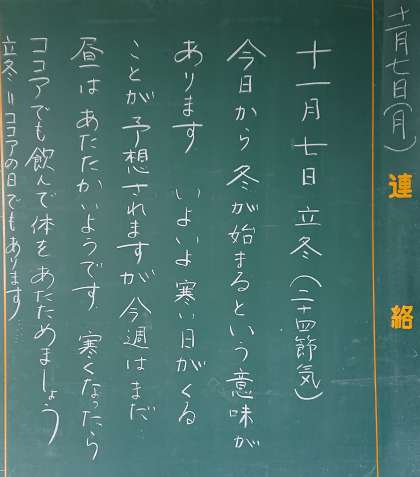 十一月七日(月)
連絡
十一月七日 立冬(二十四節気)
今日から 冬が始まるという意味が
あります いよいよ寒い日がくる
ことが予想されますが 今週はまだ
昼は あたたかいようです。寒くなったら
ココアでも飲んで体をあたためましょう
立冬=ココアの日でもあります……